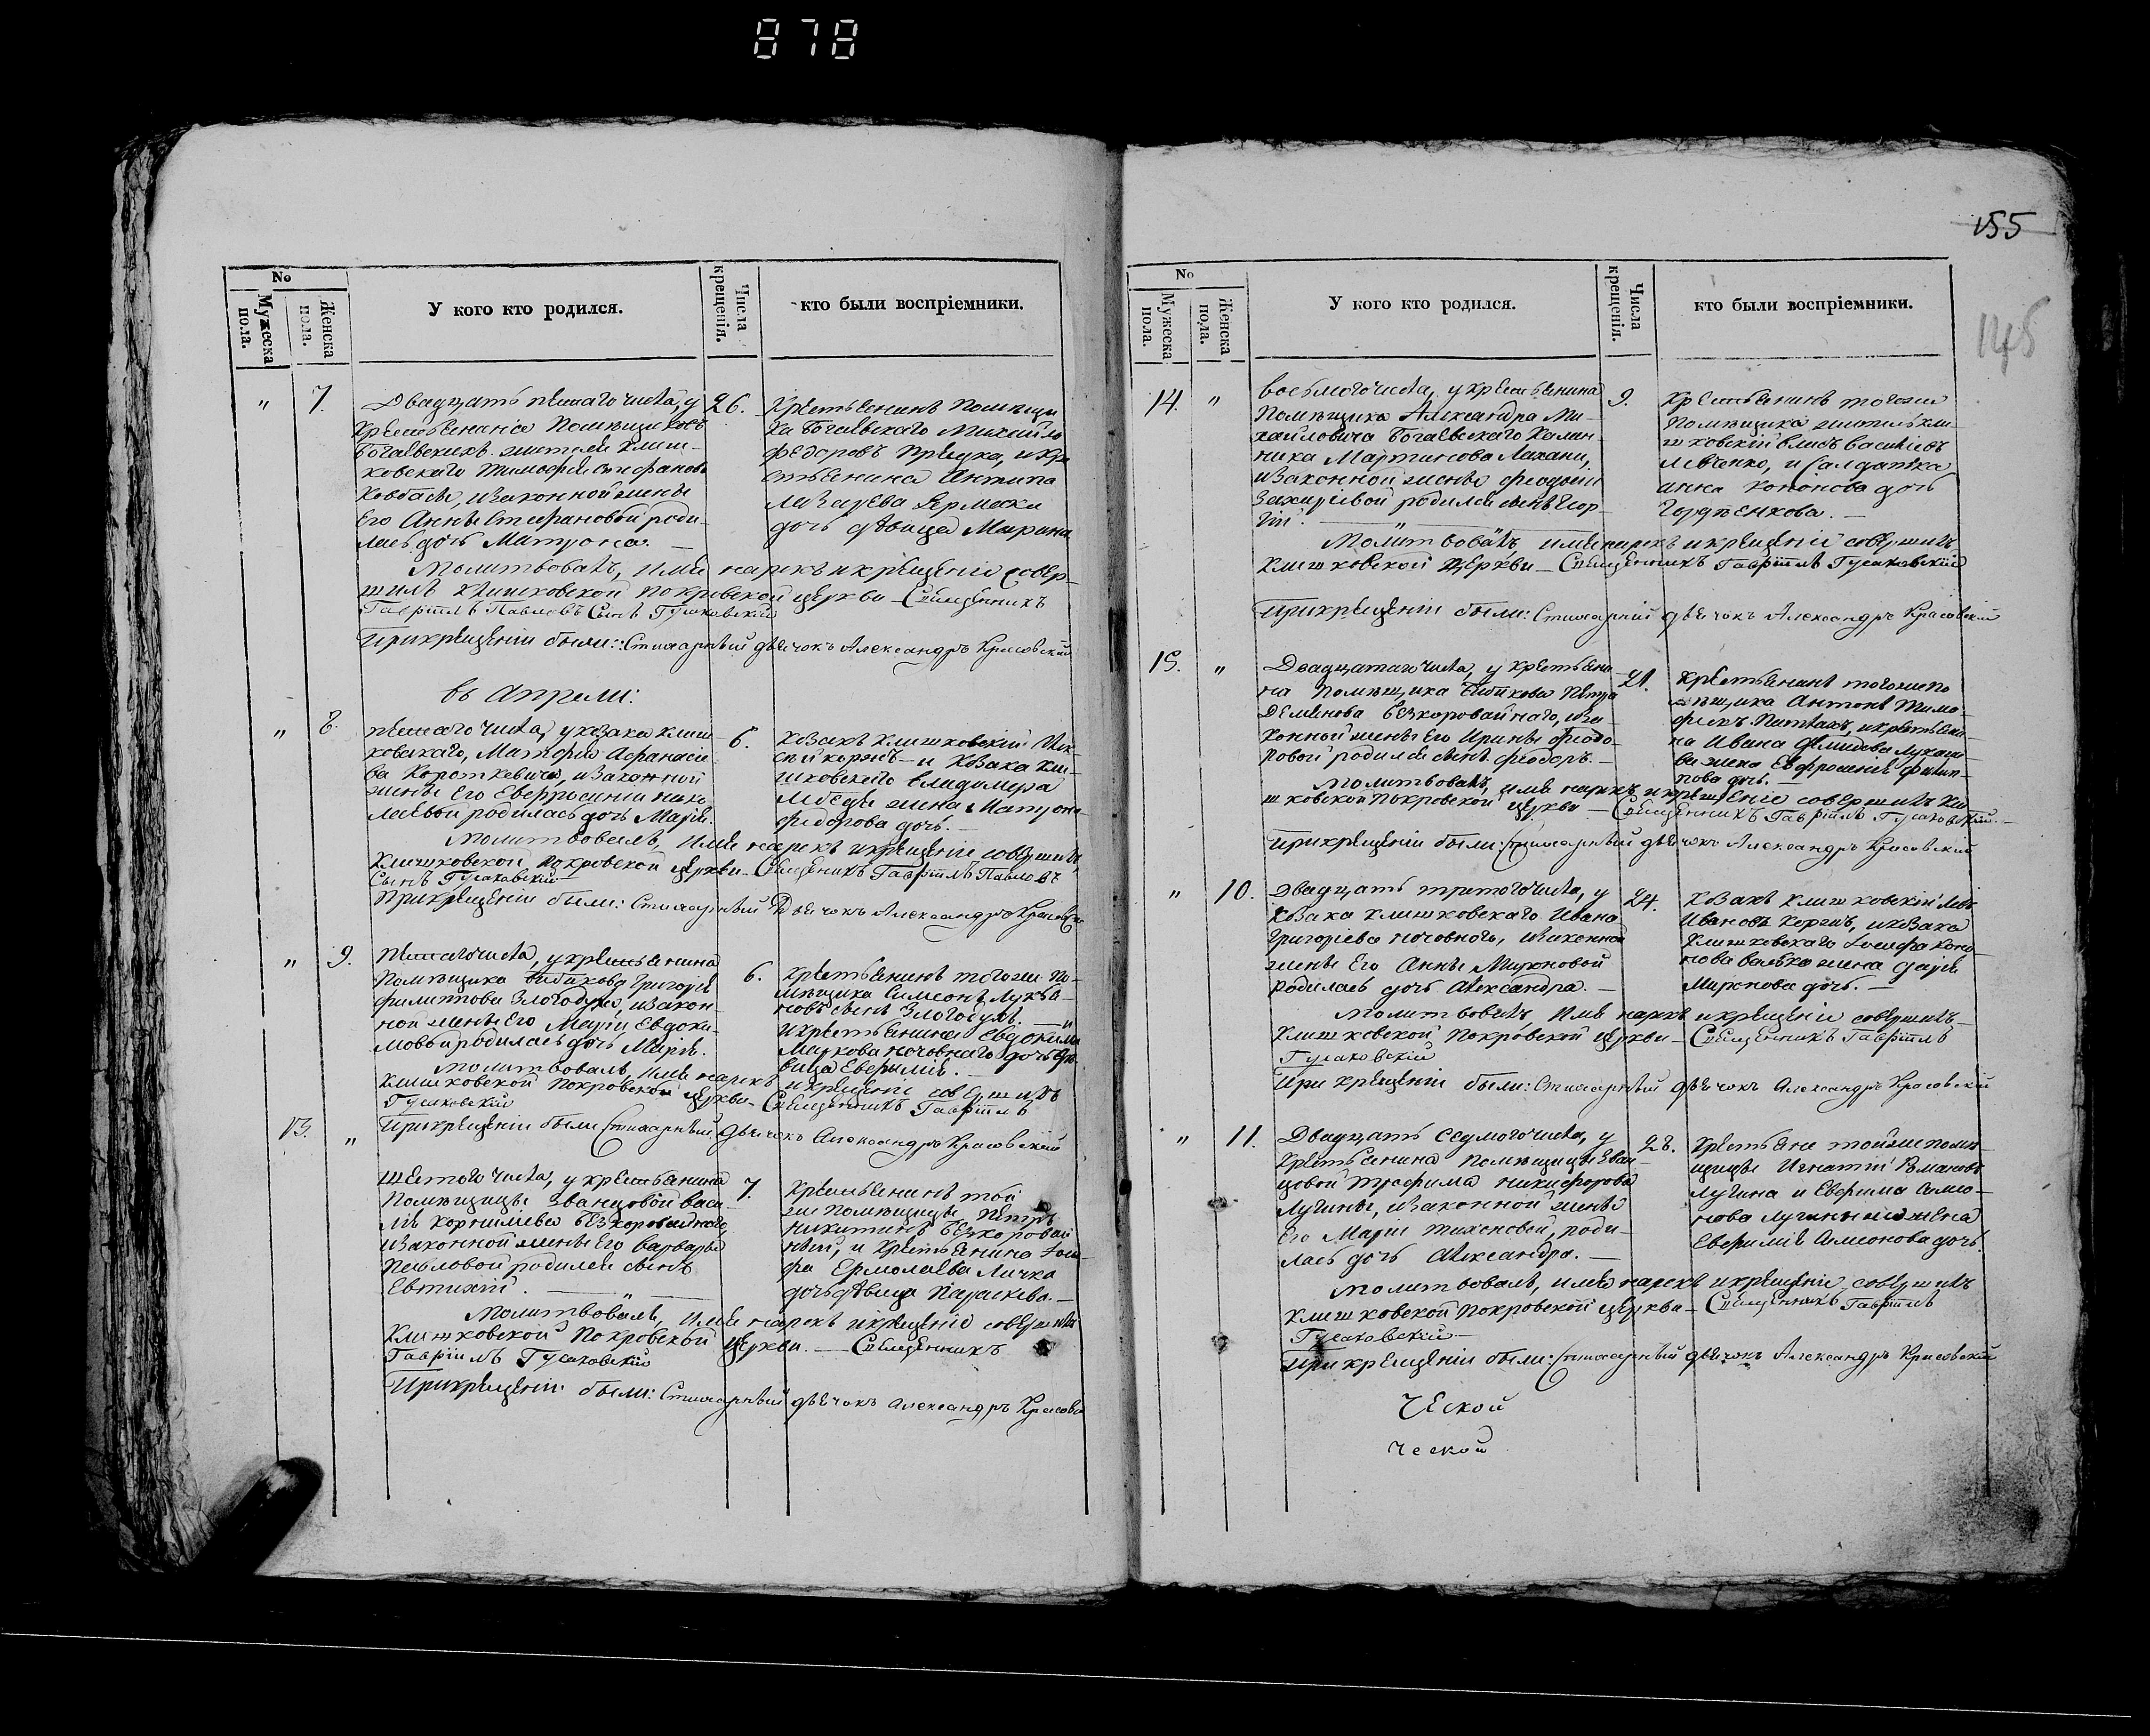 878
155
145
No
Мужеска пола.
Женска пола.
У кого кто родился.
Числа крещенія.
кто были воспріемники.
" 7.
Двадцать пятаго числа, у
крестьянина помѣщиковъ
Богаевскихъ жителя клиш-
ковскаго Тимофея Стефанова
Ковбасы, и законной жены
его Анны Стефановой роди-
лась дочь Матрона. —
26.
Крестьянинъ помѣщи
ка Богаевскаго Михайло
Федоровъ и кре
стьянина Антипа
Лазарева Ермака
дочь дѣвица Марина
Молитвовалъ, имя нарекъ и крещеніе совер-
шилъ Клишковской Покровской церкви — Священникъ
Гавріилъ Павловъ Сынъ Гусаковскій
При крещеніи были: Стихарный дьячокъ Александръ Красовскій
въ Апрели:
" 8.
пятаго числа, у козака клиш-
ковскаго, Афанасіе
ва Короткевича, и законной
жены его Евфросиніи Нико
лаевой родилась дочь Марія.
6.
Козакъ клишковскій
Коржъ — и козака кли-
шковскаго Владимера
жена Матрона
Федорова дочь. —
Молитвовалъ, имя нарекъ и крещеніе совершилъ
Клишковской Покровской церкви — Священникъ Гавріилъ Павловъ
Сынъ Гусаковскій
При крещеніи были: Стихарный Дьячокъ Александръ Красовскій
" 9.
Пятаго числа, у крестьянина
помѣщика Бибикова Григорія
Филиппова Злогодуха, и закон-
ной жены его Маріи Евдоки-
мовой родилась дочь Марія.
6.
Крестьянинъ тогожъ по-
мѣщика Симеонъ Лукья-
новъ сынъ Злогодухъ. — и
крестьянина Евдокима
Маркова Ночовнаго дочь дѣ-
вица Евфимія. —
Молитвовалъ, имя нарекъ и крещеніе совершилъ
Клишковской Покровской церкви — Священникъ Гавріилъ
Гусаковскій
При крещеніи были Стихарный дьячокъ Александръ Красовскій
13. "
Шестого числа, у крестьянина
помѣщицы Званцовой Васи-
лія Корнилiева Безкоровайнаго,
и законной жены его Варвары
Павловой родился сынъ
Евтихій. —
7.
Крестьянинъ той
же помѣщицы Петръ
Никитинъ Безкоровай
ный, и крестьянина Іоси
фа Ермолаева Личка
дочь дѣвица Параскева. —
Молитвовалъ, имя нарекъ и крещеніе совершилъ
Клишковской Покровской церкви. — Священникъ
Гавріилъ Гусаковскій
При крещеніи были: Стихарный дьячокъ Александръ Красовскій
No
Мужеска пола.
Женска пола.
У кого кто родился.
Числа крещенія.
кто были воспріемники.
14. "
восьмого числа, у крестьянина
помѣщика Александра Ми-
хайловича Богаевскаго Калин-
ника Мартинова
и законной жены Феодосіи
Захаріевой родился сынъ Геор-
гій. —
9.
Крестьянинъ тогоже
помѣщика житель кли-
шковскій Василіевъ
Левченко, и салдатка
Анна Кононова дочь
Гордѣенкова. —
Молитвовалъ имя нарекъ и крещеніе совершилъ
Клишковской церкви — Священникъ Гавріилъ Гусаковскій
При крещеніи были: Стихарній дьячокъ Александръ Красовскій
15. "
Двадцатаго числа, у крестьяни-
на помѣщика Бибикова Петра
Демянова Безкоровайнаго, и за-
конной жены его Ирины Феодо-
ровой родился сынъ Феодоръ. —
21.
Крестьянинъ тогоже по
мѣщика Антонъ Тимо-
феевъ и крестьяни-
на Ивана Демидова Лукаше
ва жена Евфросинія Филип-
пова дочь. —
Молитвовалъ, имя нарекъ и крещеніе совершилъ Кли-
шковской Покровской церкви — Священникъ Гавріилъ Гусаковскій. —
При крещеніи были: Стихарный дьячокъ Александръ Красовскій
" 10.
Двадцать третого числа, у
козака клишковскаго Ивана
Григоріева Ночовного, и законной
жены его Анны Мироновой
родилась дочь Александра. —
24.
Козакъ клишковскій Левъ
Ивановъ Коржъ, и козака
клишковскаго Іосифа Коно
нова жена Дарія
Миронова дочь. —
Молитвовалъ имя нарекъ и крещеніе совершилъ —
Клишковской Покровской церкви — Священникъ Гавріилъ
Гусаковскій
При крещеніи были: Стихарный дьячокъ Александръ Красовскій
" 11.
Двадцать седмого числа, у
крестьянина помѣщицы Зван-
цовой Трофима Никифорова
Лучины, и законной жены
его Маріи Тихоновой, роди-
лась дочь Александра. —
28.
Крестьяне тойже помѣ
щицы Игнатій Романовъ
Лучина и Ефима Симо-
нова Лучины жена
Евфимія Симонова дочь.
Молитвовалъ, имя нарекъ и крещеніе совершилъ
Клишковской Покровской церкви — Священникъ Гавріилъ
Гусаковскій —
При крещеніи были: Стихарный дьячокъ Александръ Красовскій
ческой
ческой